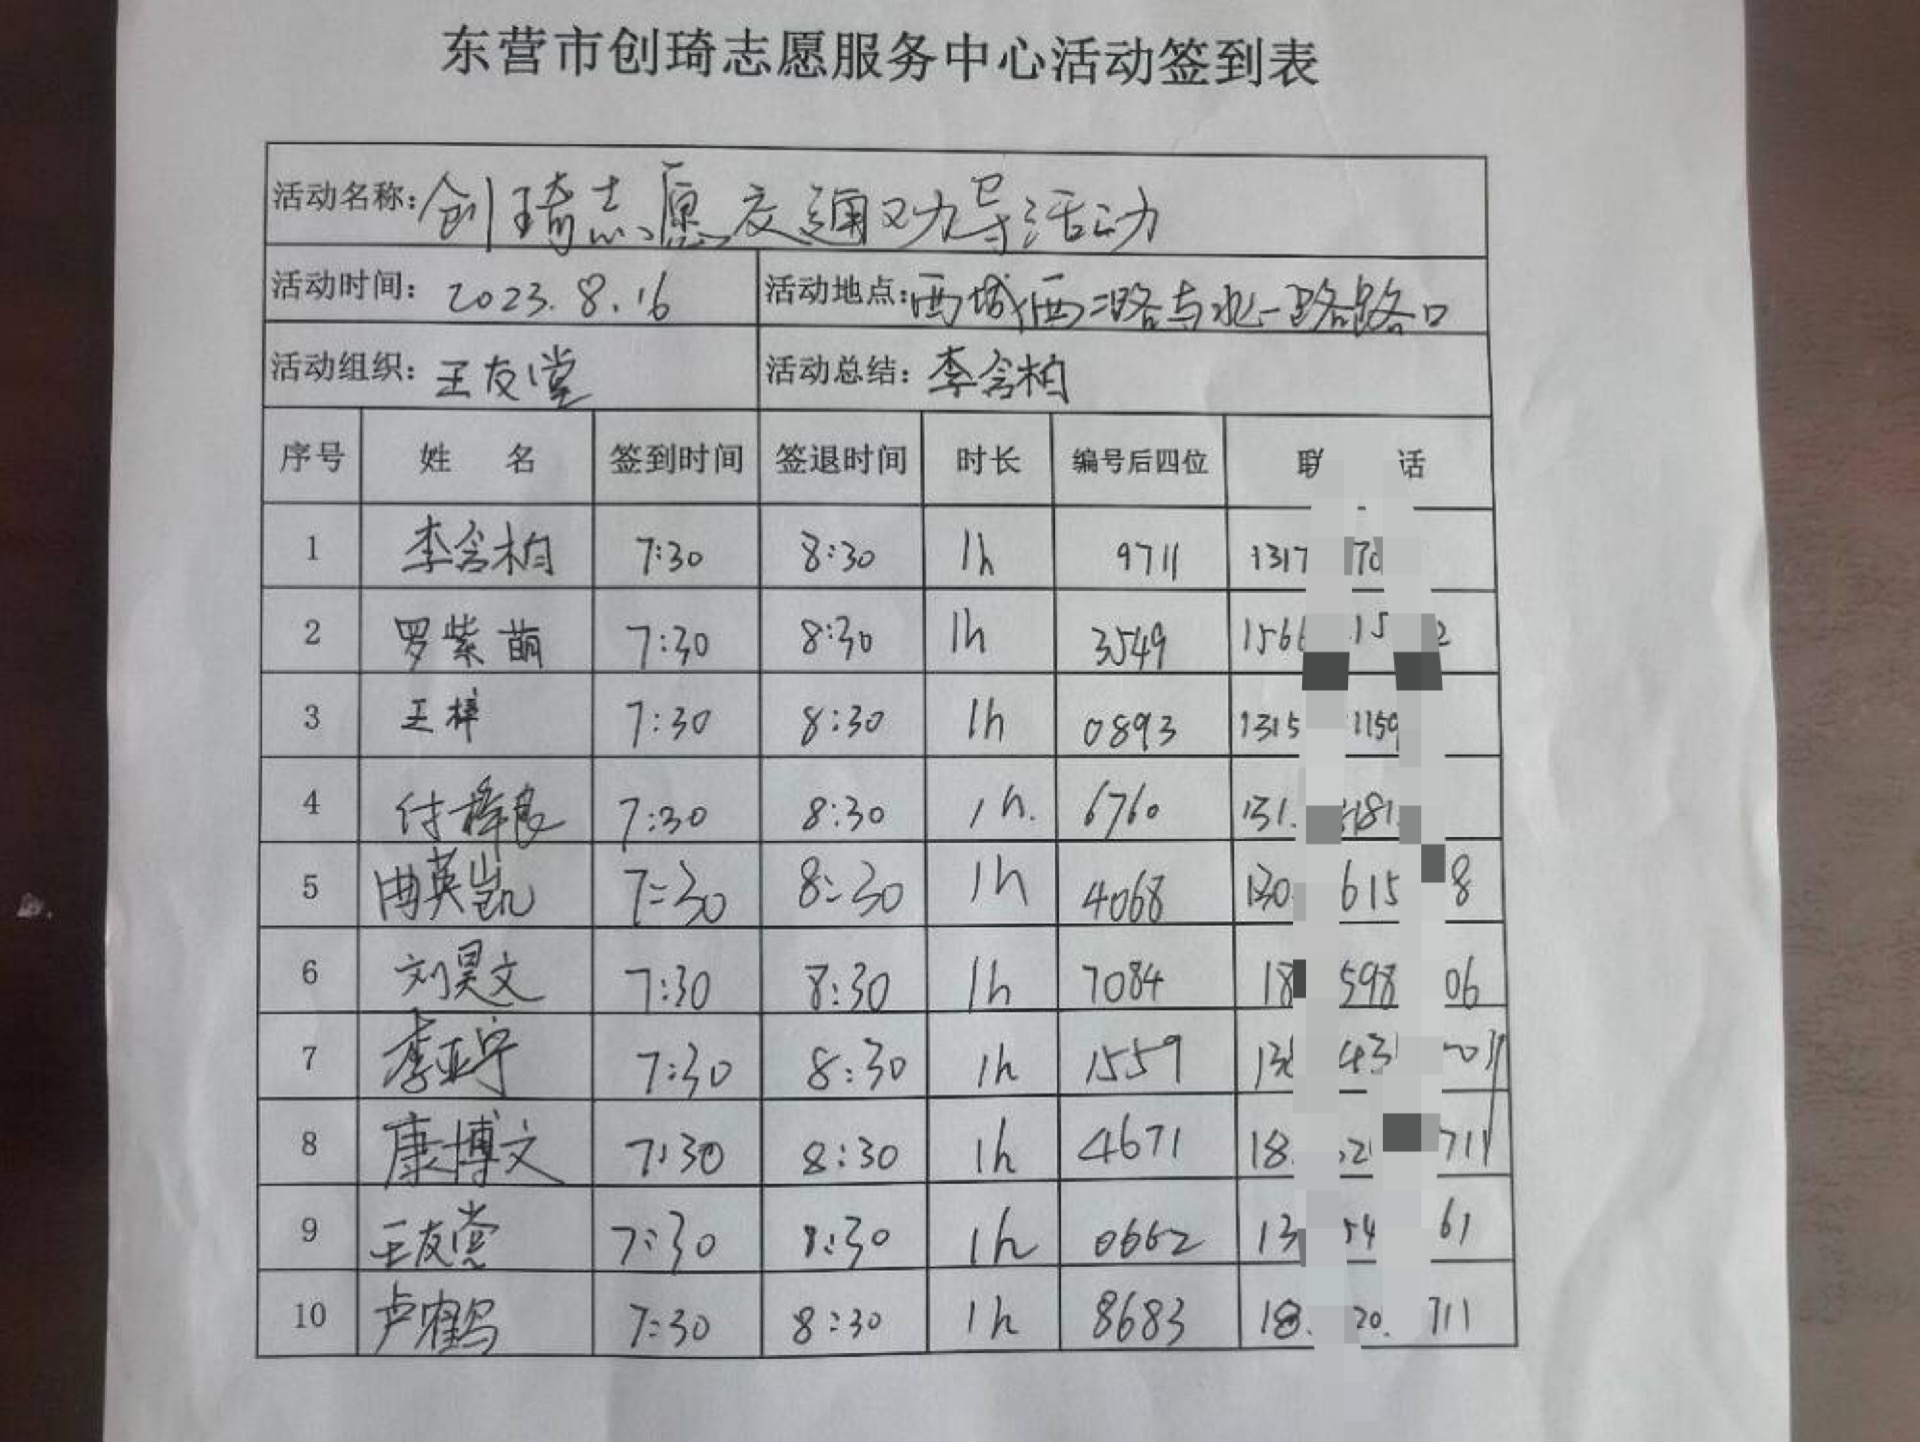 东营市创琦志愿服务中心活动签到表
活动名称: 创琦志愿交通劝导活动
活动时间: 2023.8.16 活动地点: 西城西二路与北一路路口
活动组织: 王友堂 活动总结: 李含柏
序号 姓 名 签到时间 签退时间 时长 编号后四位 联 话
1 李含柏 7:30 8:30 1h 9711 1317 70
2 罗紫萌 7:30 8:30 1h 3549 156 15 2
3 王梓 7:30 8:30 1h 0893 1315 1159
4 付梓良 7:30 8:30 1h. 6760 131 181
5 曲英凯 7:30 8:30 1h 4068 130 615 8
6 刘昊文 7:30 8:30 1h 7084 18 598 06
7 李亚宁 7:30 8:30 1h 1559 13 43
8 康博文 7:30 8:30 1h 4671 18 2 711
9 王友堂 7:30 8:30 1h 0662 13 54 61
10 卢鹤 7:30 8:30 1h 8683 18 20 711